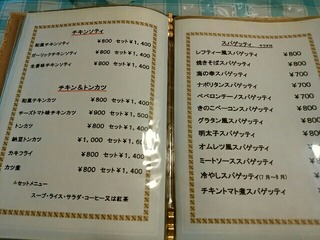 チキンソティ
和風チキンソティ ¥800 セット¥1,400
ガーリックチキンソティ ¥800 セット¥1,400
生姜味チキンソティ ¥800 セット¥1,400
チキン&トンカツ
和風チキンカツ ¥800 セット¥1,400
チーズトマト味チキンカツ ¥900 セット¥1,500
トンカツ ¥800 セット¥1,400
納豆トンカツ ¥1,000 セット¥1,600
カキフライ ¥800 セット¥1,400
カツ重 ¥800 セット¥1,400
セットメニュー
スープ・ライス・サラダ・コーヒー又は紅茶
スパゲッティ
レフティー風スパゲッティ ¥800
焼きそばスパゲッティ ¥800
海の幸スパゲッティ ¥700
ナポリタンスパゲッティ ¥700
ペペロンチーノスパゲッティ ¥700
きのこベーコンスパゲッティ ¥800
グラタン風スパゲッティ ¥800
明太子スパゲッティ ¥800
オムレツ風スパゲッティ ¥800
ミートソーススパゲッティ ¥800
冷やしスパゲッティ ¥800
チキントマト煮スパゲッティ ¥800